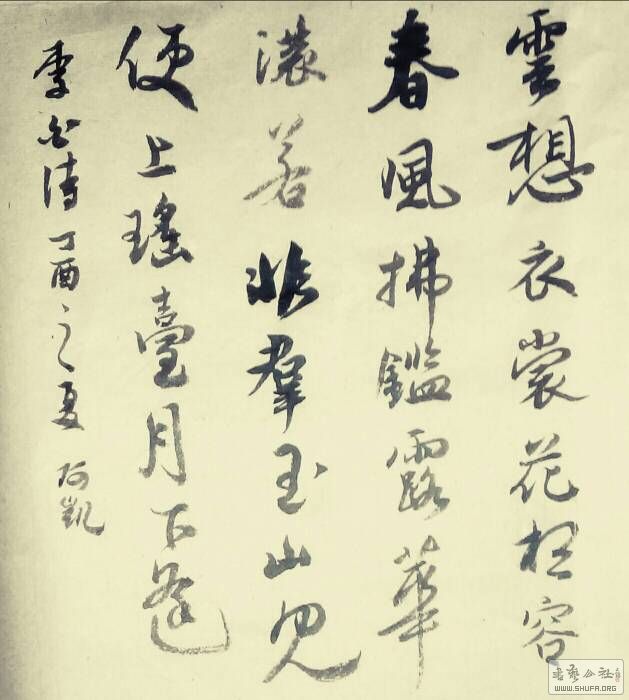 雲想衣裳花想容
春風拂鑑露華
濃若非羣玉山見
便上瑤臺月下逢
李白詩丁酉之夏 阿凱
書藝公社
WWW.SHUFA.ORG